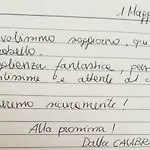 1 Magg
volissimo soggiorno, qu
obello.
olienza fantastica, pers
tilissime e attente al c
remo sicuramente!
Alla prossima!
Dalla CALABR